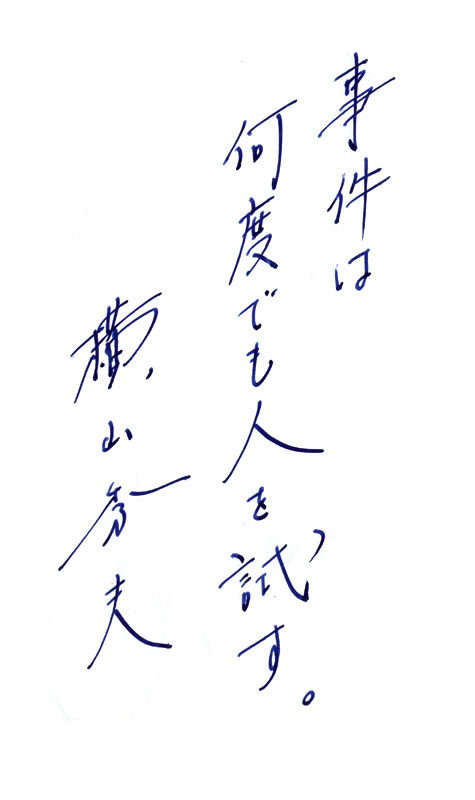 事件は
何度でも人を試す。
横山秀夫